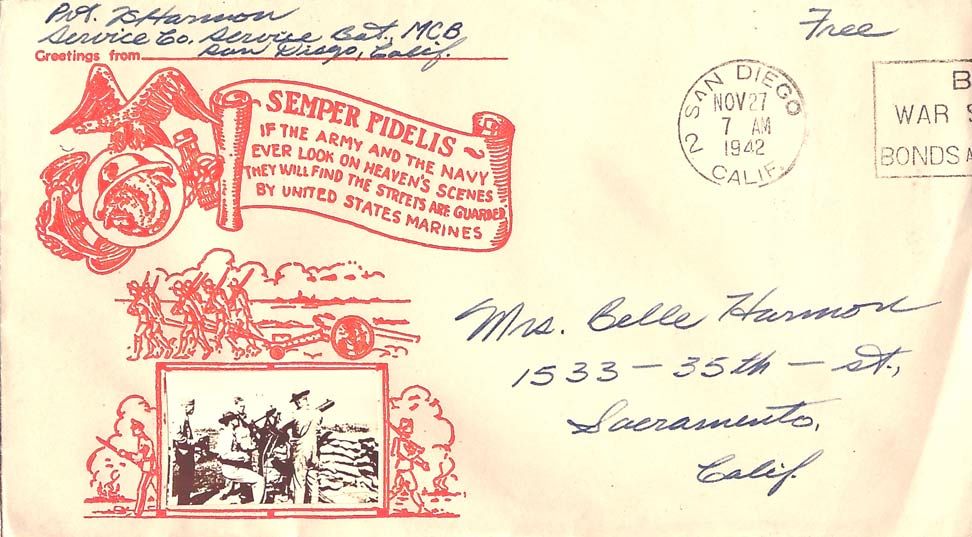 Pvt. D Harmon
Service Co. Service Bat., MCB
San Diego, Calif.
Greetings from
Free
SEMPER FIDELIS
IF THE ARMY AND THE NAVY
EVER LOOK ON HEAVEN'S SCENES
THEY WILL FIND THE STREETS ARE GUARDED
BY UNITED STATES MARINES
SAN DIEGO
NOV 27
7 AM
1942
2 CALIF.
B
WAR S
BONDS A
Mrs. Belle Harmon
1533 - 35th - St.,
Sacramento,
Calif.